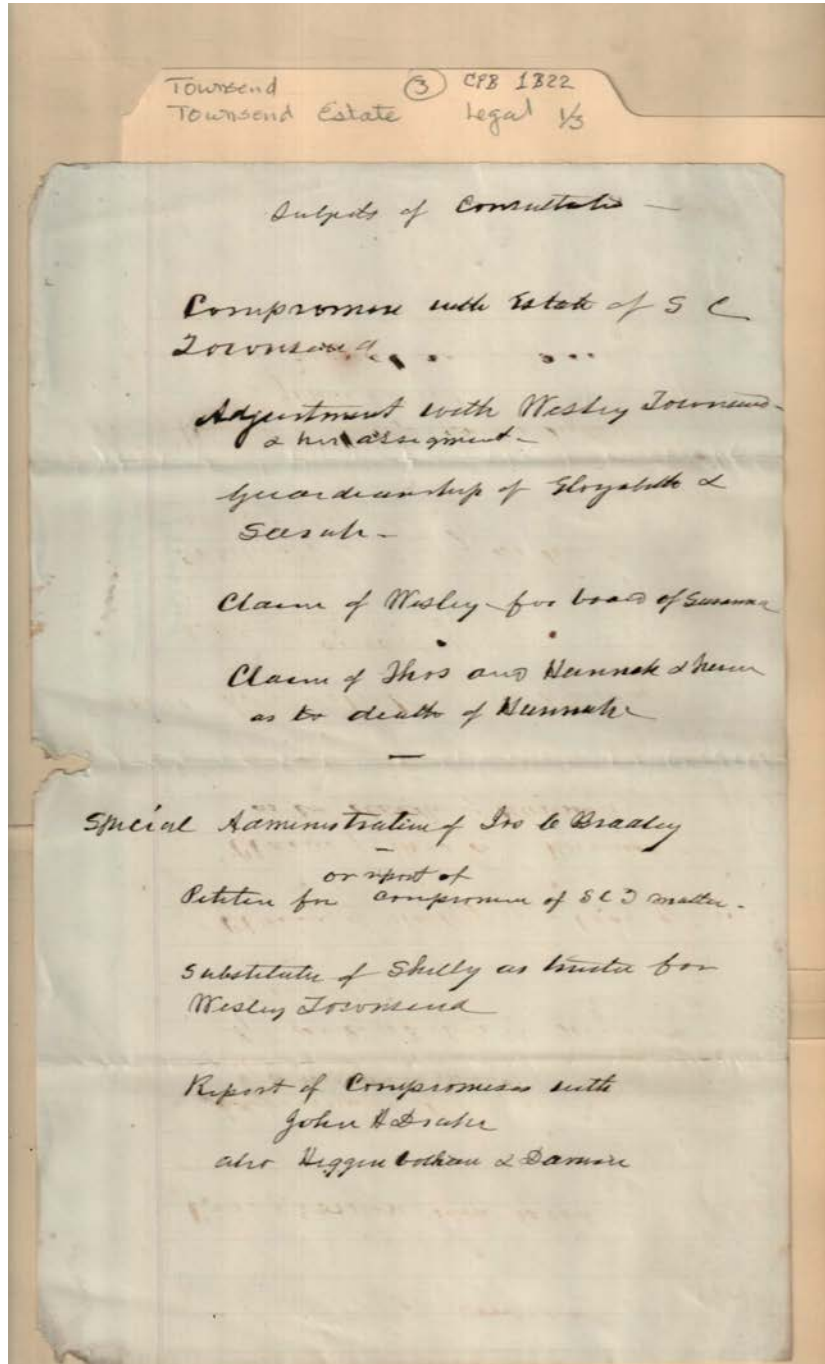 Townsend ③ CPB 1B22
Townsend Estate Legal 1/3
Subjects of Consultation —
Compromise with Estate of S C
Townsend
Adjustment with Wesley Townsend -
& his assigment -
Guardianship of Elizabeth &
Sarah -
Claim of Wesley - for board of Susanna
Claim of Thos and Hannah &
as to death of Hannah
—
Special Administration of Jno C Bradley
or report of
Petition for compromise of S C T matter -
Substitute of Shelly as trustee for
Wesley Townsend
Report of Compromises with
John H Drake
also Higginbotham &